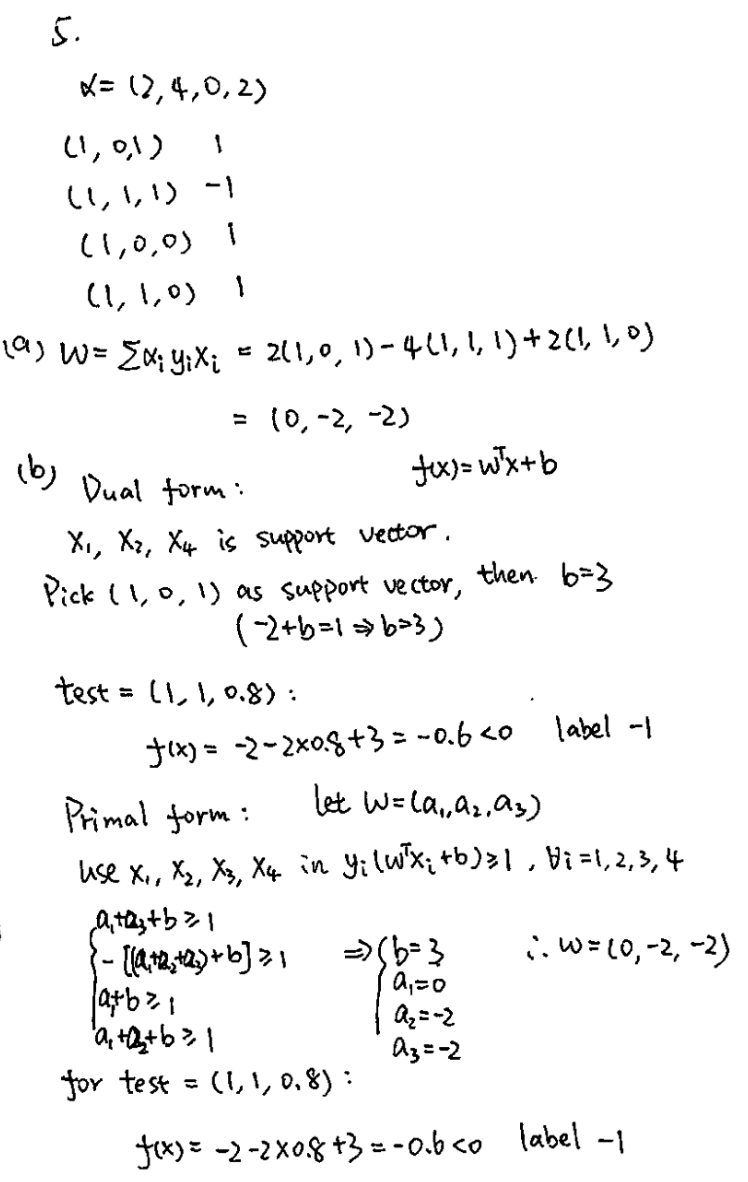 5.
α = (2, 4, 0, 2)
(1, 0, 1) 1
(1, 1, 1) -1
(1, 0, 0) 1
(1, 1, 0) 1
(a) W = Σαᵢyᵢxᵢ = 2(1, 0, 1) - 4(1, 1, 1) + 2(1, 1, 0)
= (0, -2, -2)
(b) Dual form: f(x) = wᵀx + b
X₁, X₂, X₄ is support vector.
Pick (1, 0, 1) as support vector, then b=3
(-2+b=1 ⇒ b=3)
test = (1, 1, 0.8):
f(x) = -2-2×0.8+3 = -0.6 <0 label -1
Primal form: let W=(a₁, a₂, a₃)
use x₁, x₂, x₃, x₄ in yᵢ(wᵀxᵢ+b)≥1, ∀i=1, 2, 3, 4
{ a₁+a₃+b ≥ 1
- [(a₁+a₂+a₃)+b] ≥ 1 ⇒ { b=3 ∴ w=(0, -2, -2)
a₁+b ≥ 1 a₁=0
a₁+a₂+b ≥ 1 a₂=-2
a₃=-2
for test = (1, 1, 0.8):
f(x) = -2-2×0.8+3 = -0.6 <0 label -1